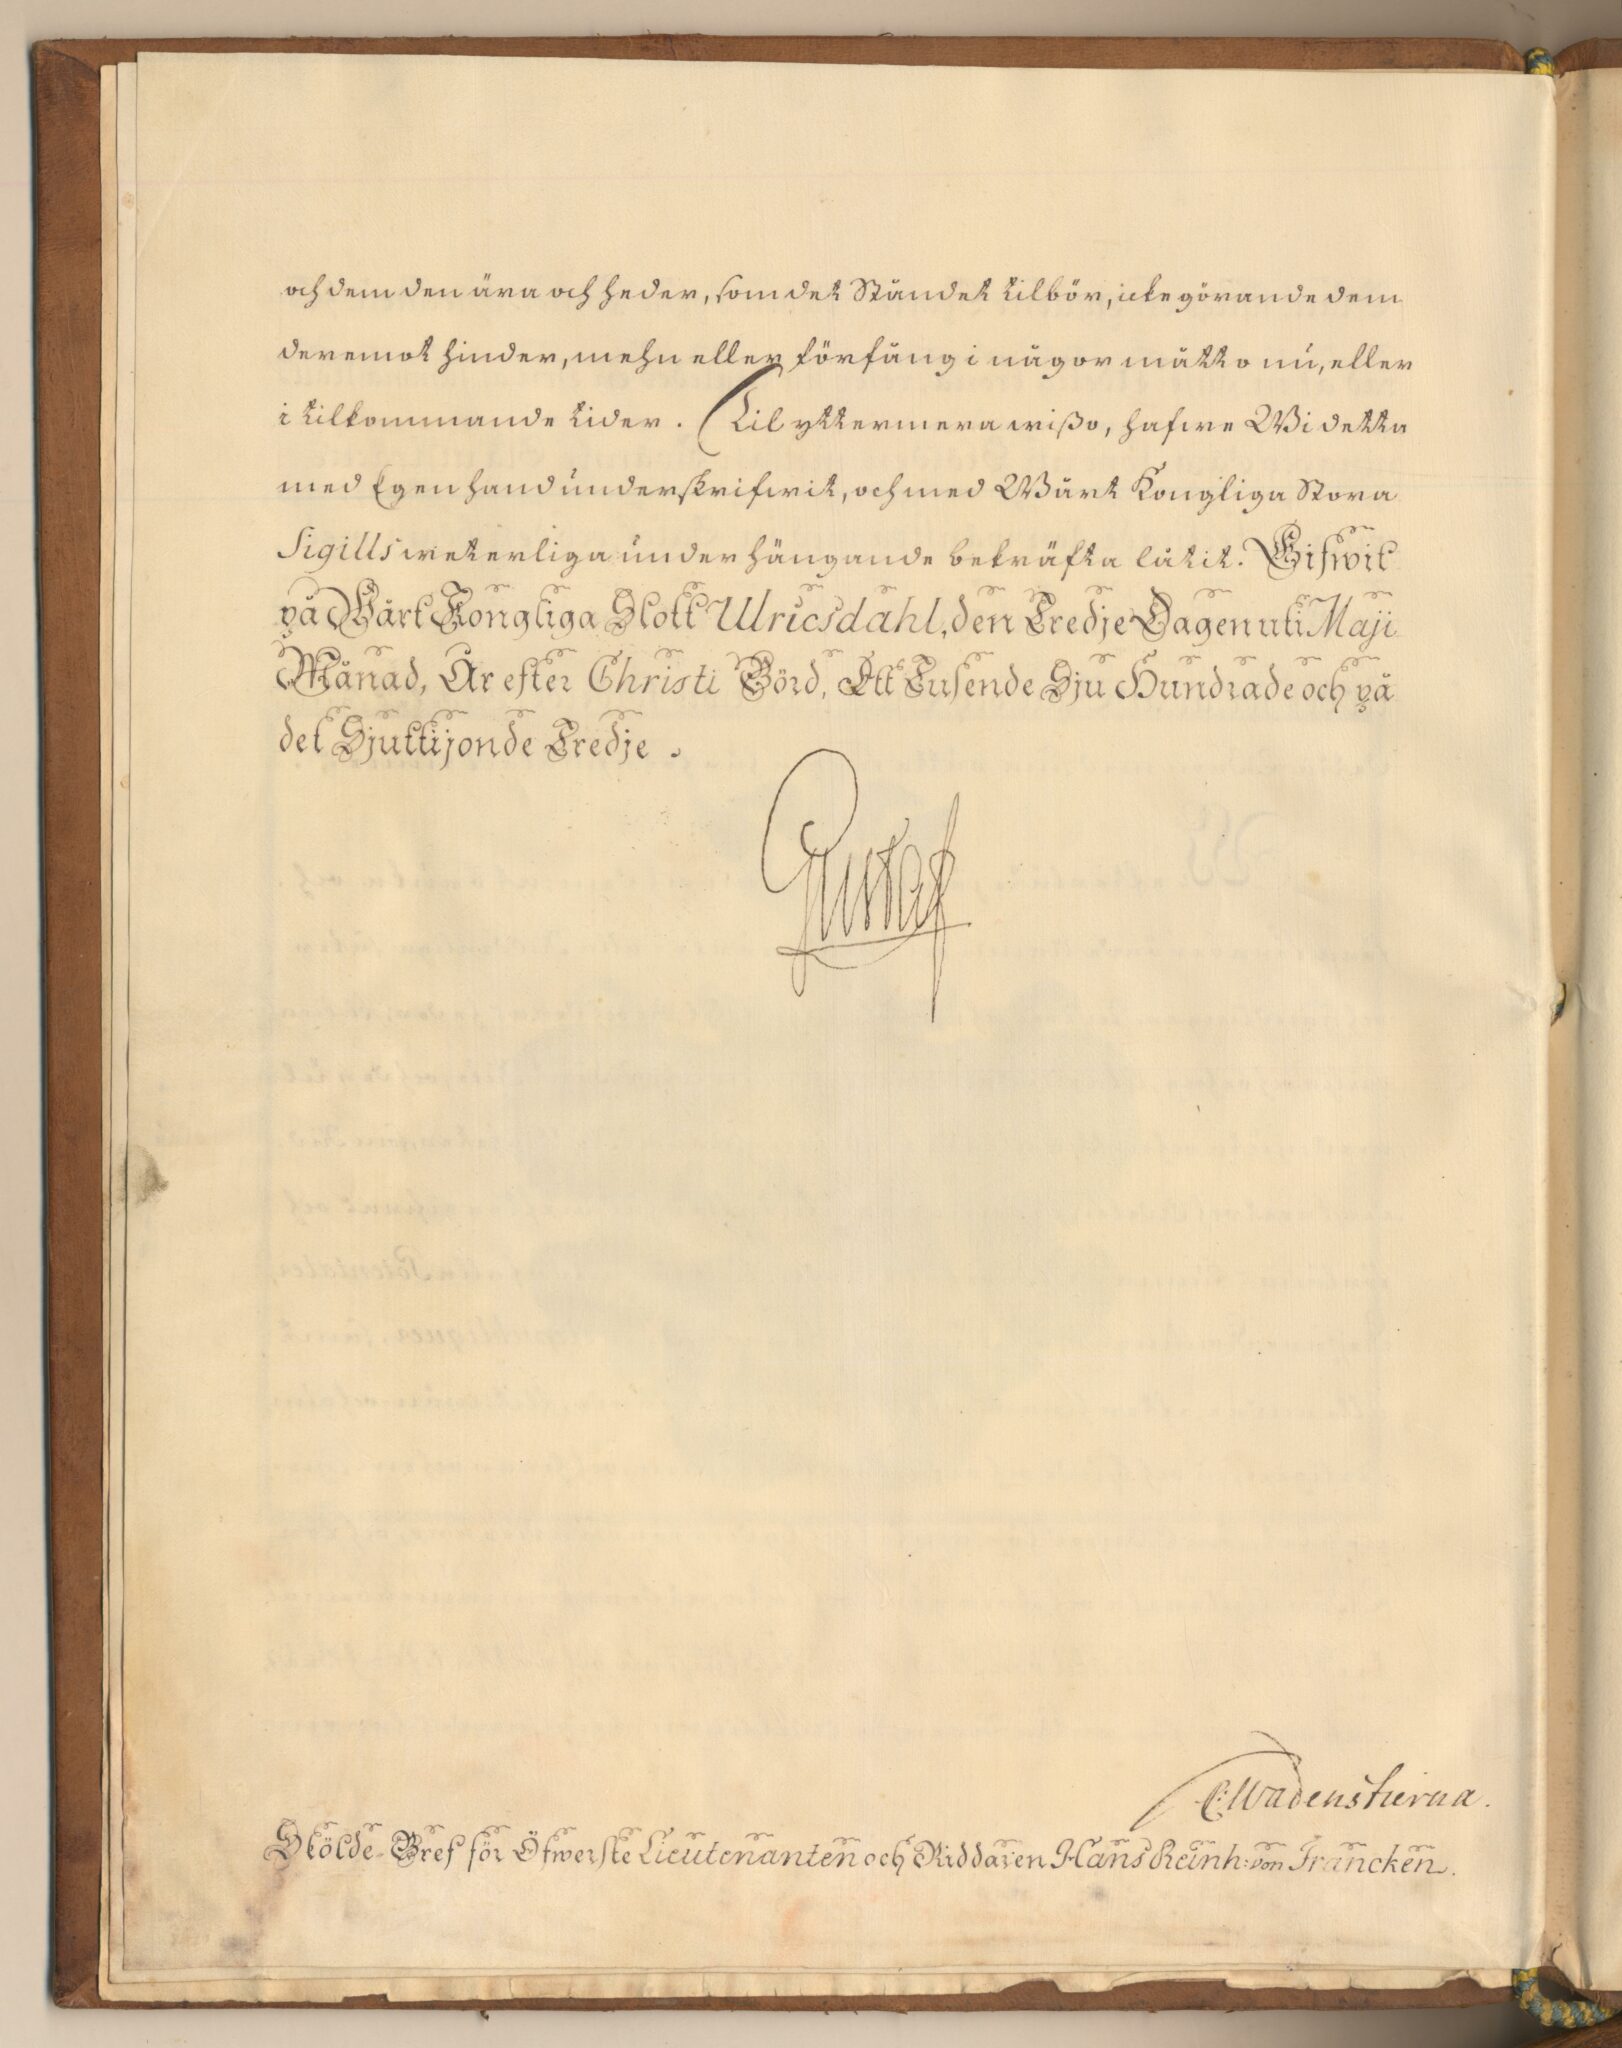 och dem den ära och heder, som det Ståndet tilbör, icke görande dem
deremot hinder, mehn eller förfång i någor måtto nu, eller
i tilkommande tider. Til yttermera wißo, hafwe Wi detta
med Egen hand underskrifwit, och med Wårt Kongliga Stora
Sigills weterliga underhängande bekräfta låtit. Gifwit
på Wårt Kongliga Slott Ulricsdahl, den Tredje Dagen uti Maji
Månad, År efter Christi Börd, Ett Tusende Sju Hundrade och på
det Sjuttijonde Tredje.
Gustaf
C: Wadenstierna.
Skölde-Bref för Öfwerste Lieutenanten och Riddaren Hans Reinh: von Francken.